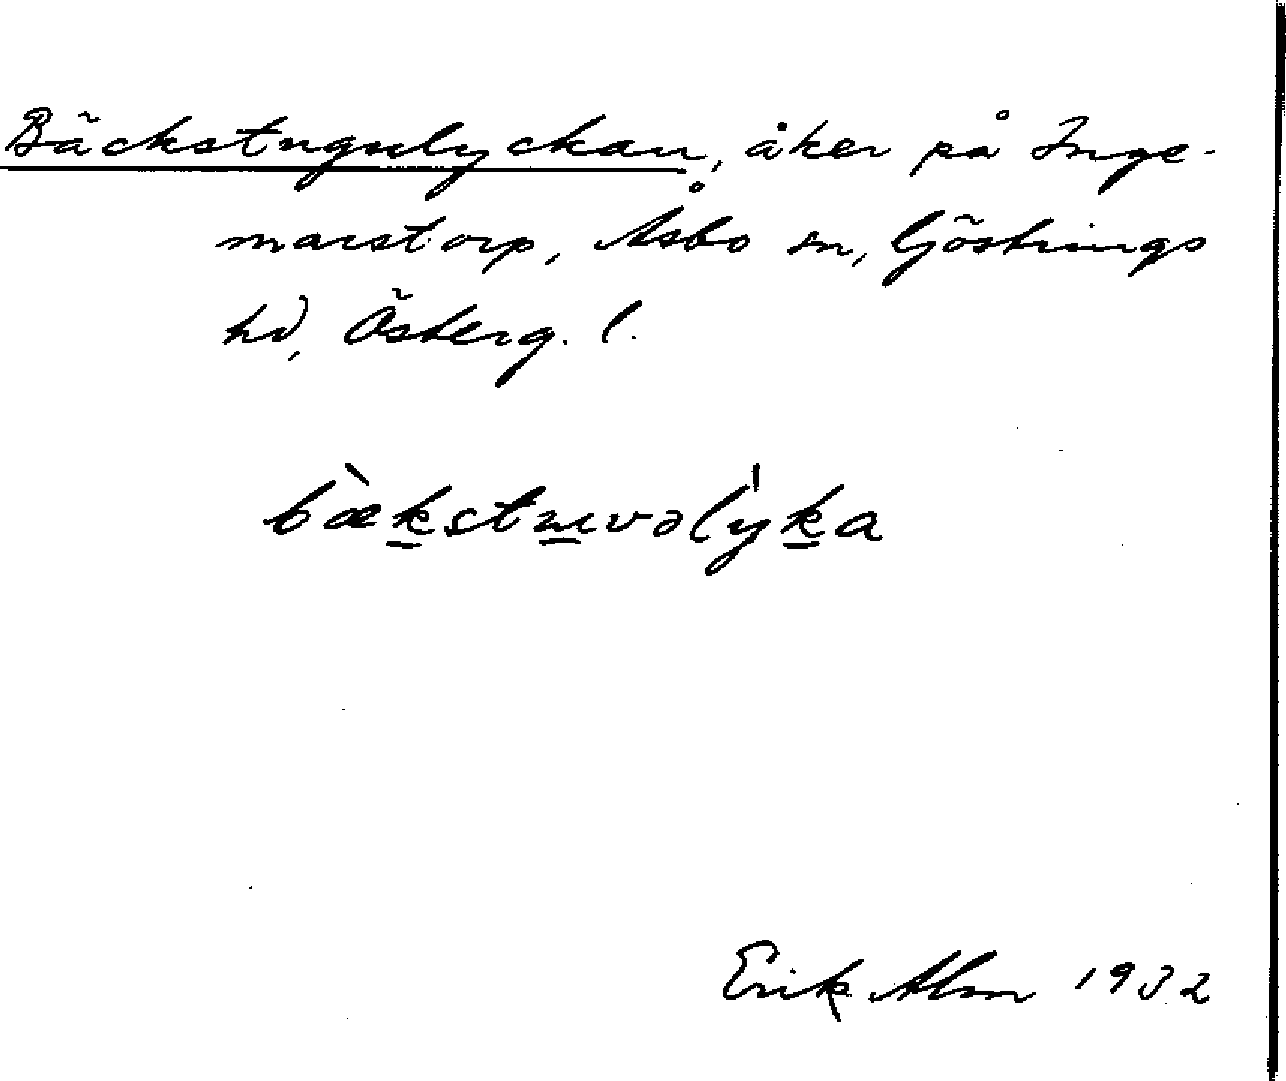 Bäckstugulyckan, åker på Inge-
marstorp, Åsbo sn, Göstrings
hd, Österg. l.
bækstuvəlyka
Erik Alm 1932